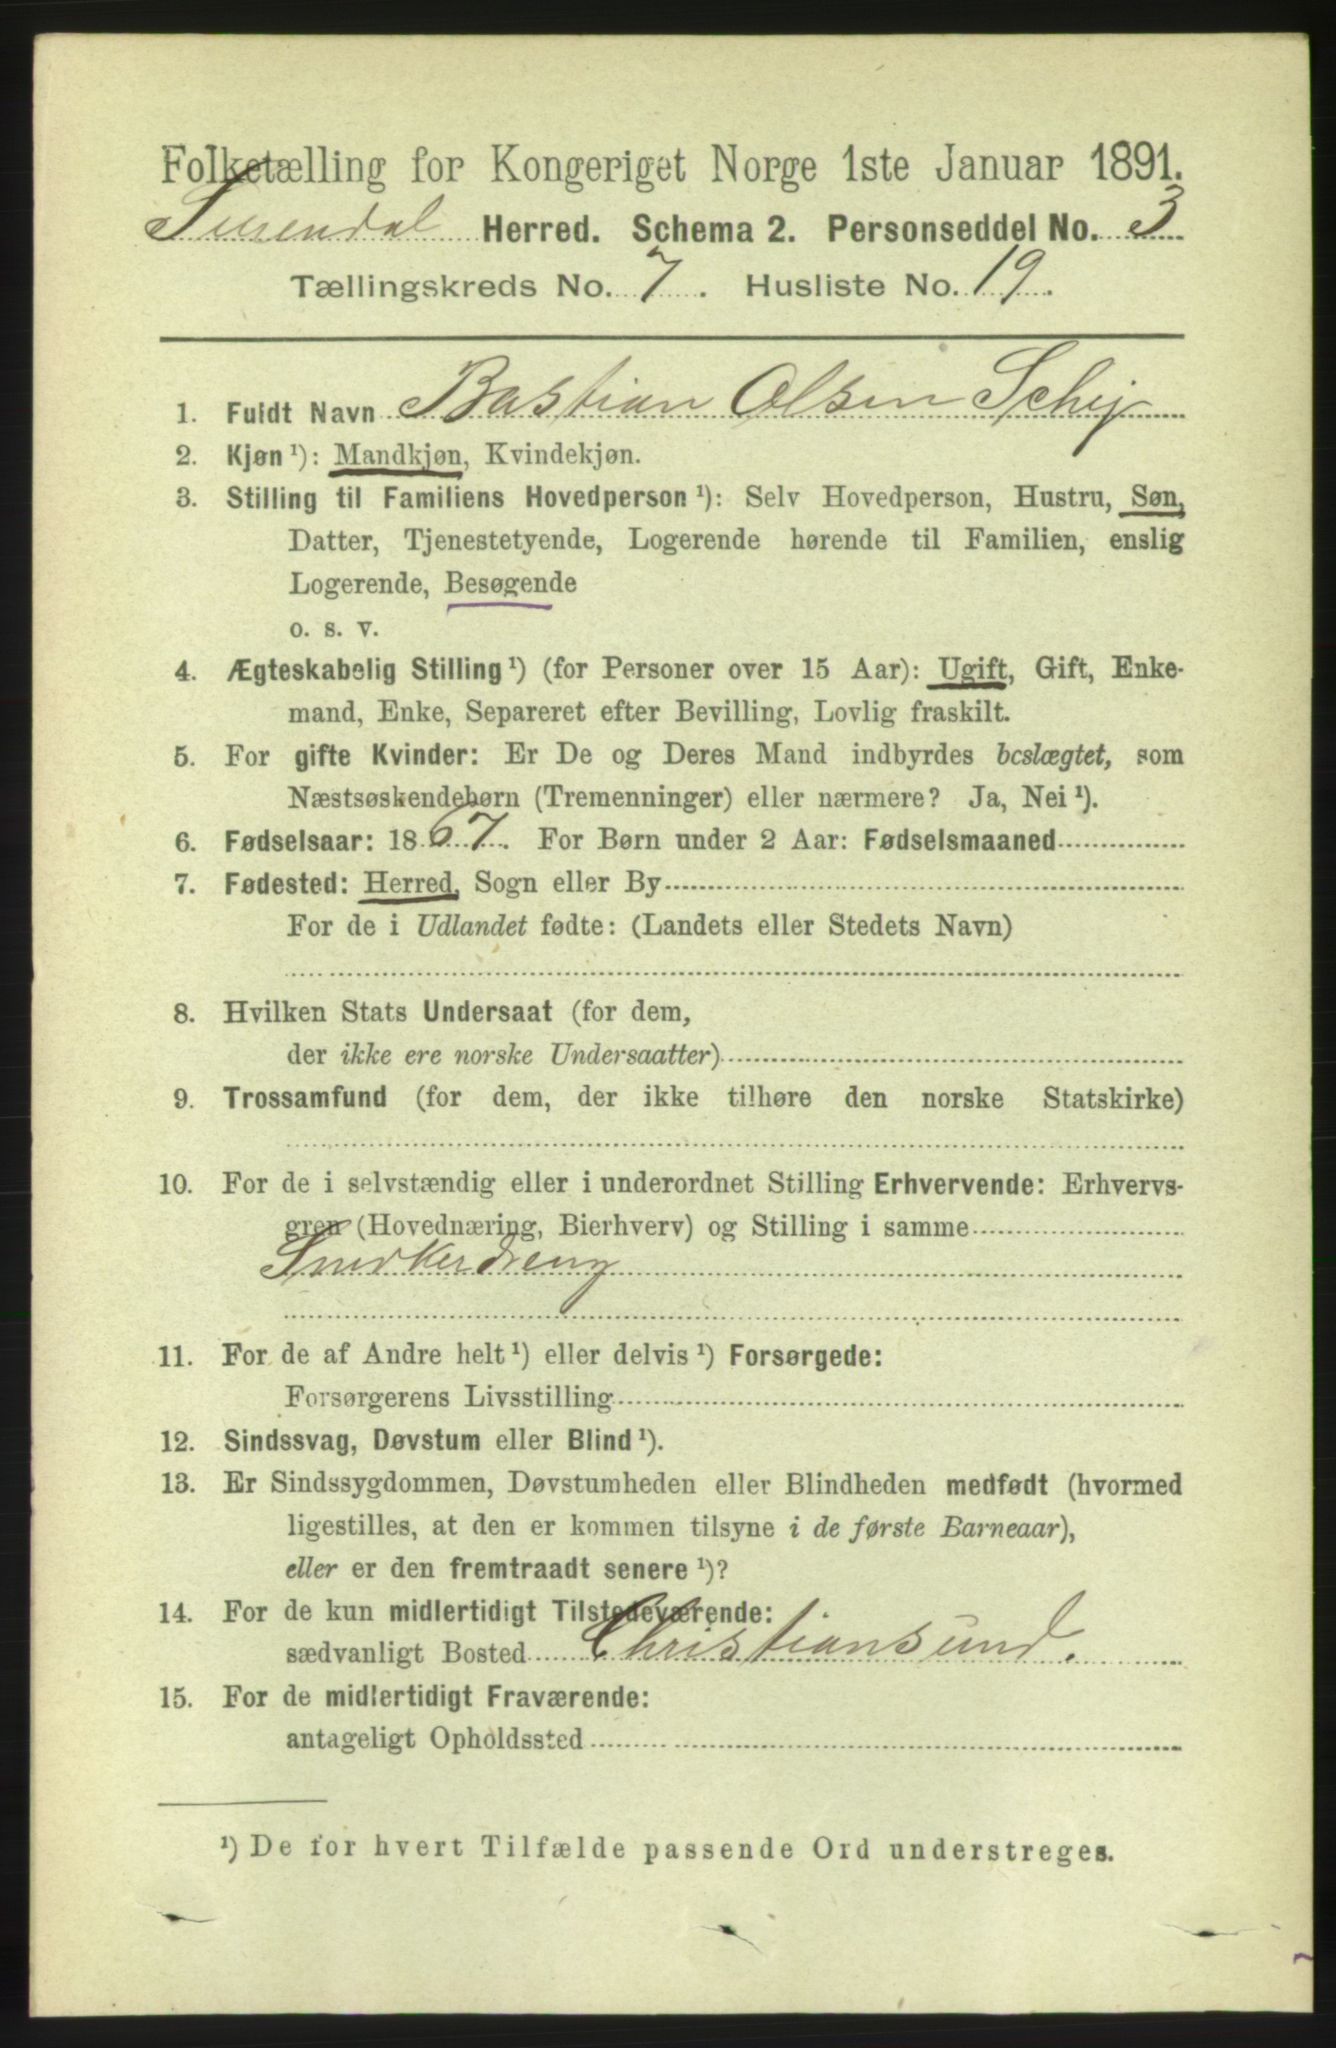 Folketælling for Kongeriget Norge 1ste Januar 1891.
Surendal Herred. Schema 2. Personseddel No. 3
Tællingskreds No. 7. Husliste No. 19.
1. Fuldt Navn Bastian Olsen Schej
2. Kjøn ¹): Mandkjøn, Kvindekjøn.
3. Stilling til Familiens Hovedperson ¹): Selv Hovedperson, Hustru, Søn,
Datter, Tjenestetyende, Logerende hørende til Familien, enslig
Logerende, Besøgende
o. s. v.
4. Ægteskabelig Stilling ¹) (for Personer over 15 Aar): Ugift, Gift, Enke-
mand, Enke, Separeret efter Bevilling, Lovlig fraskilt.
5. For gifte Kvinder: Er De og Deres Mand indbyrdes beslægtet, som
Næstsøskendebørn (Tremenninger) eller nærmere? Ja, Nei ¹).
6. Fødselsaar: 1867. For Børn under 2 Aar: Fødselsmaaned
7. Fødested: Herred, Sogn eller By
For de i Udlandet fødte: (Landets eller Stedets Navn)
8. Hvilken Stats Undersaat (for dem,
der ikke ere norske Undersaatter)
9. Trossamfund (for dem, der ikke tilhøre den norske Statskirke)
10. For de i selvstændig eller i underordnet Stilling Erhvervende: Erhvervs-
gren (Hovednæring, Bierhverv) og Stilling i samme
Snedkerdreng
11. For de af Andre helt ¹) eller delvis ¹) Forsørgede:
Forsørgerens Livsstilling
12. Sindssvag, Døvstum eller Blind ¹).
13. Er Sindssygdommen, Døvstumheden eller Blindheden medfødt (hvormed
ligestilles, at den er kommen tilsyne i de første Barneaar),
eller er den fremtraadt senere ¹)?
14. For de kun midlertidigt Tilstedeværende:
sædvanligt Bosted Christiansund.
15. For de midlertidigt Fraværende:
antageligt Opholdssted
¹) De for hvert Tilfælde passende Ord understreges.